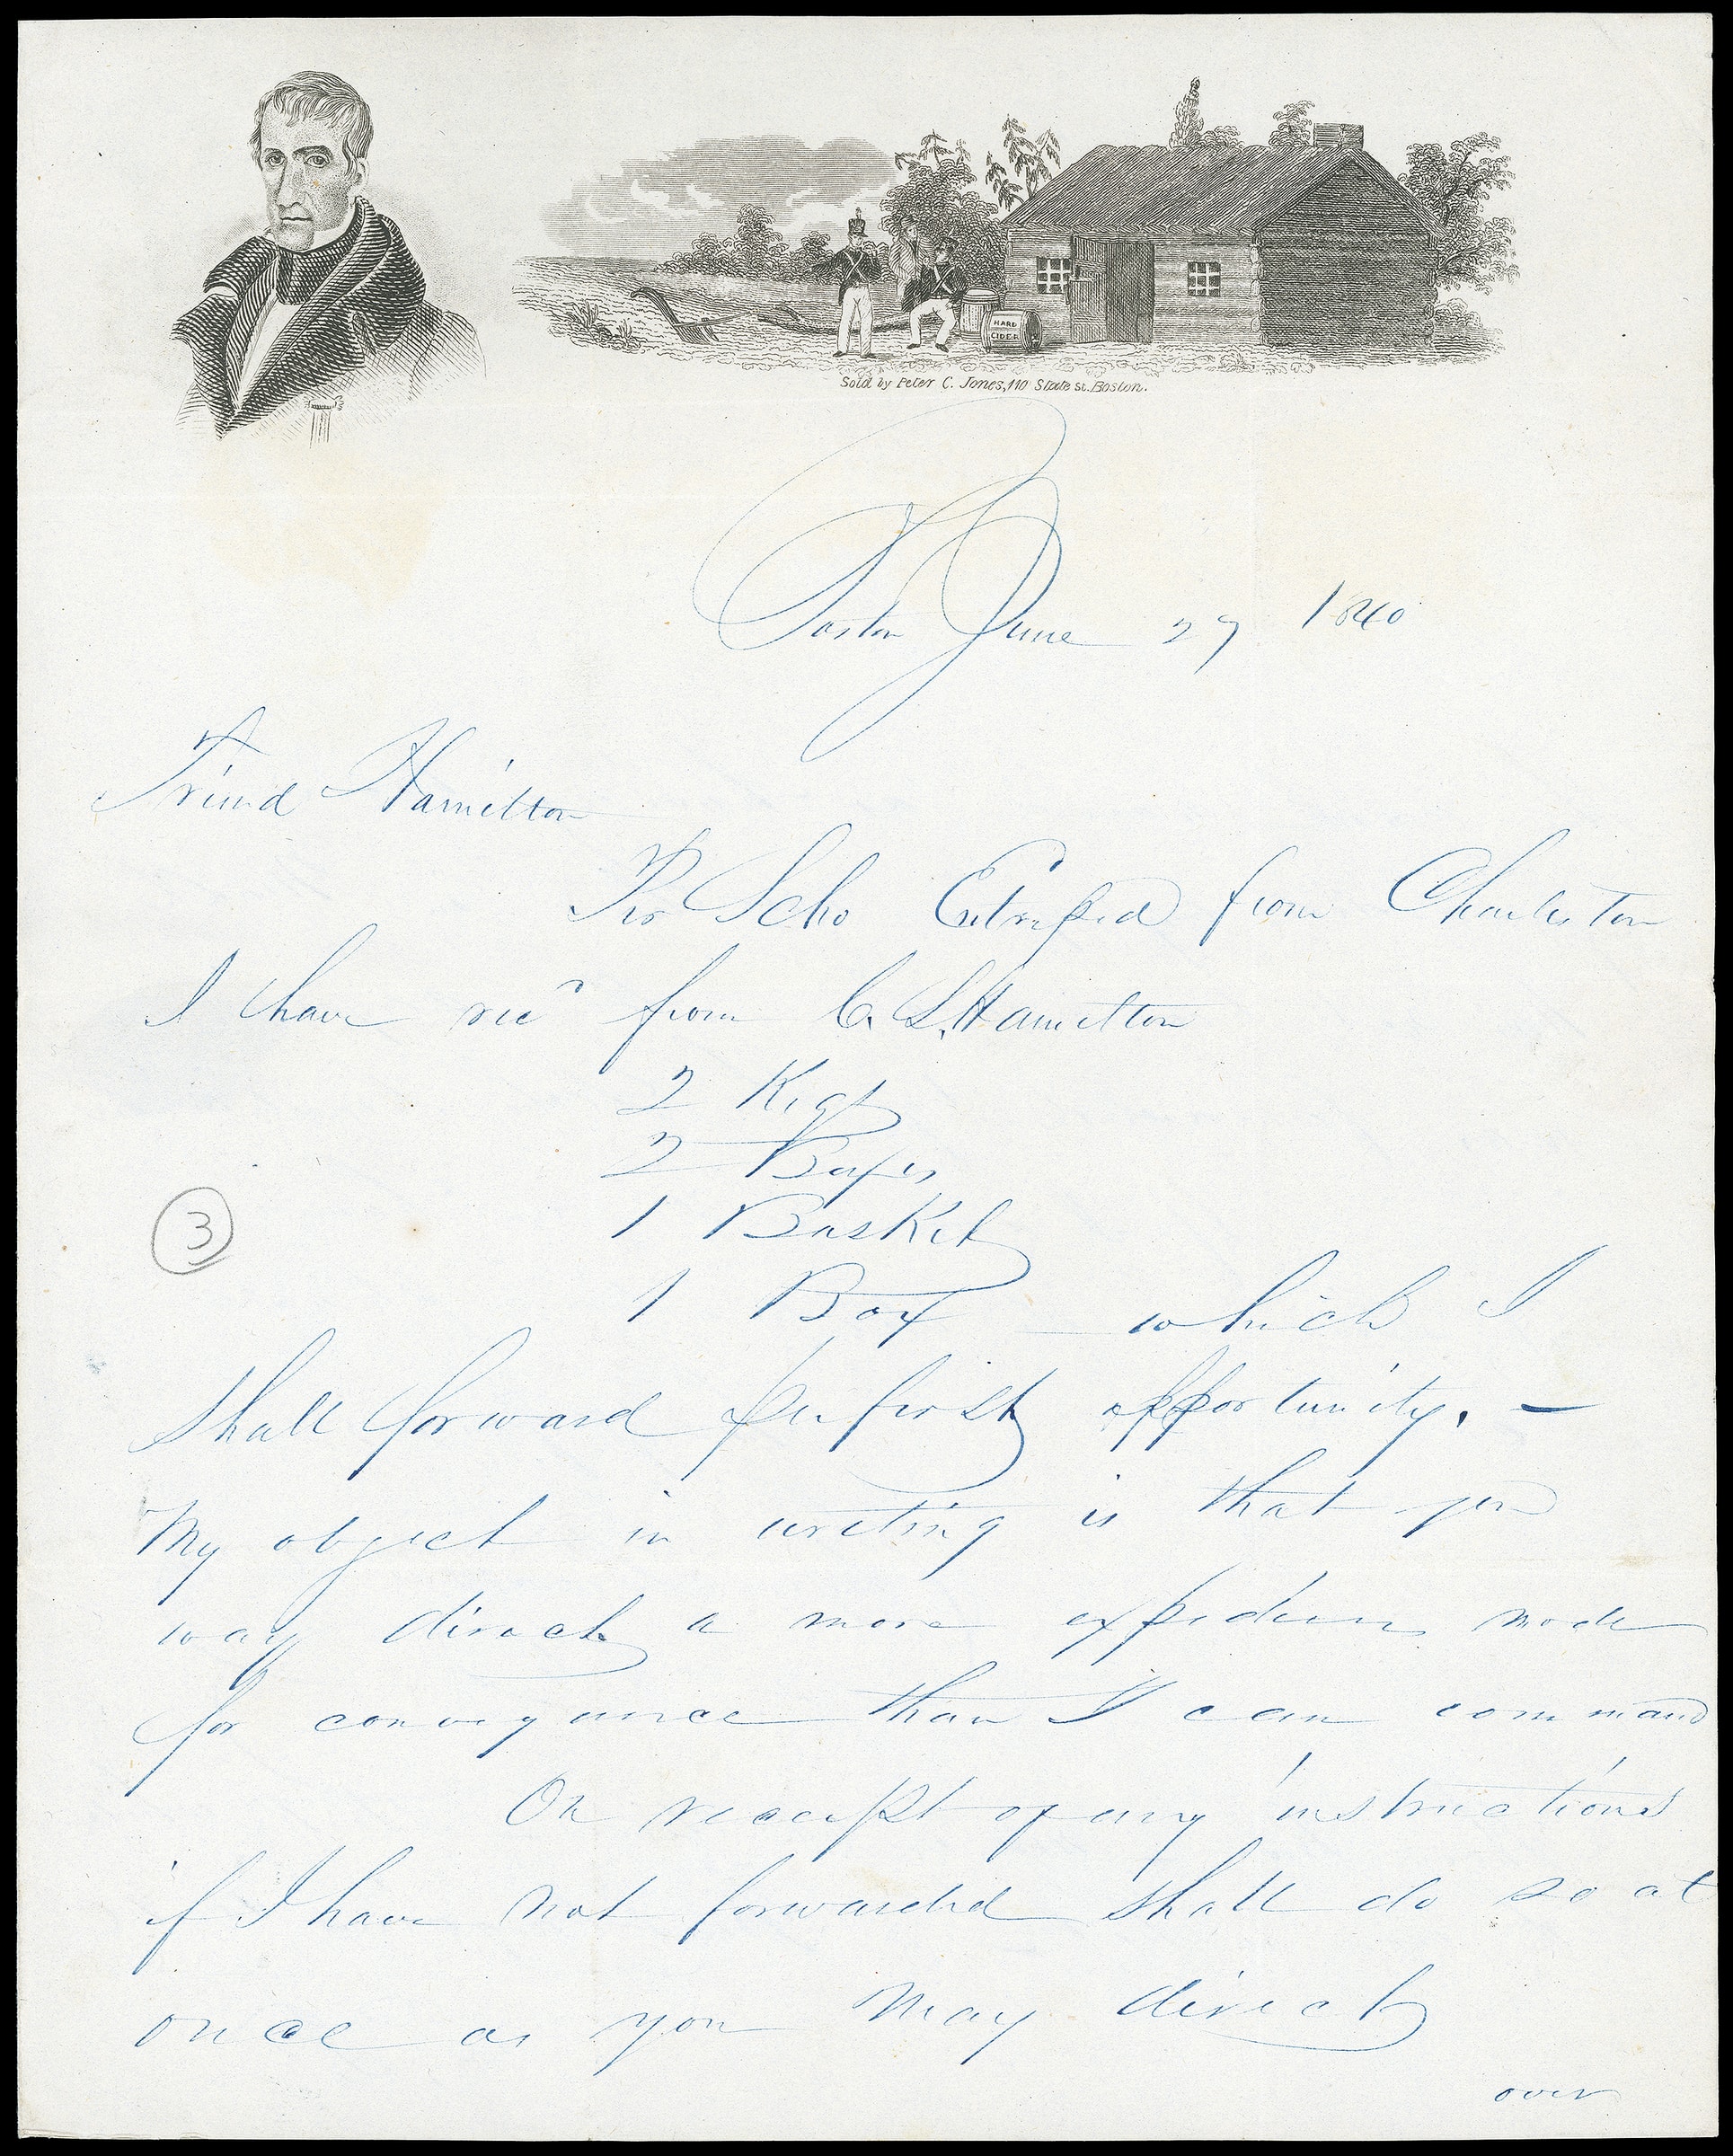 HARD
CIDER
Sold by Peter C. Jones, 110 State st. Boston.
Boston June 27 1840
Friend Hamilton
Per Scho from Charleston
I have recd from C. L. Hamilton
2 Kegs
2 Boxes
1 Basket
1 Box which I
shall forward per first opportunity. —
My object in writing is that you
way direct a more mode
for conveyance than I can command
On receipt of any instructions
if I have not forwarded shall do so at
once as you may direct
over
3